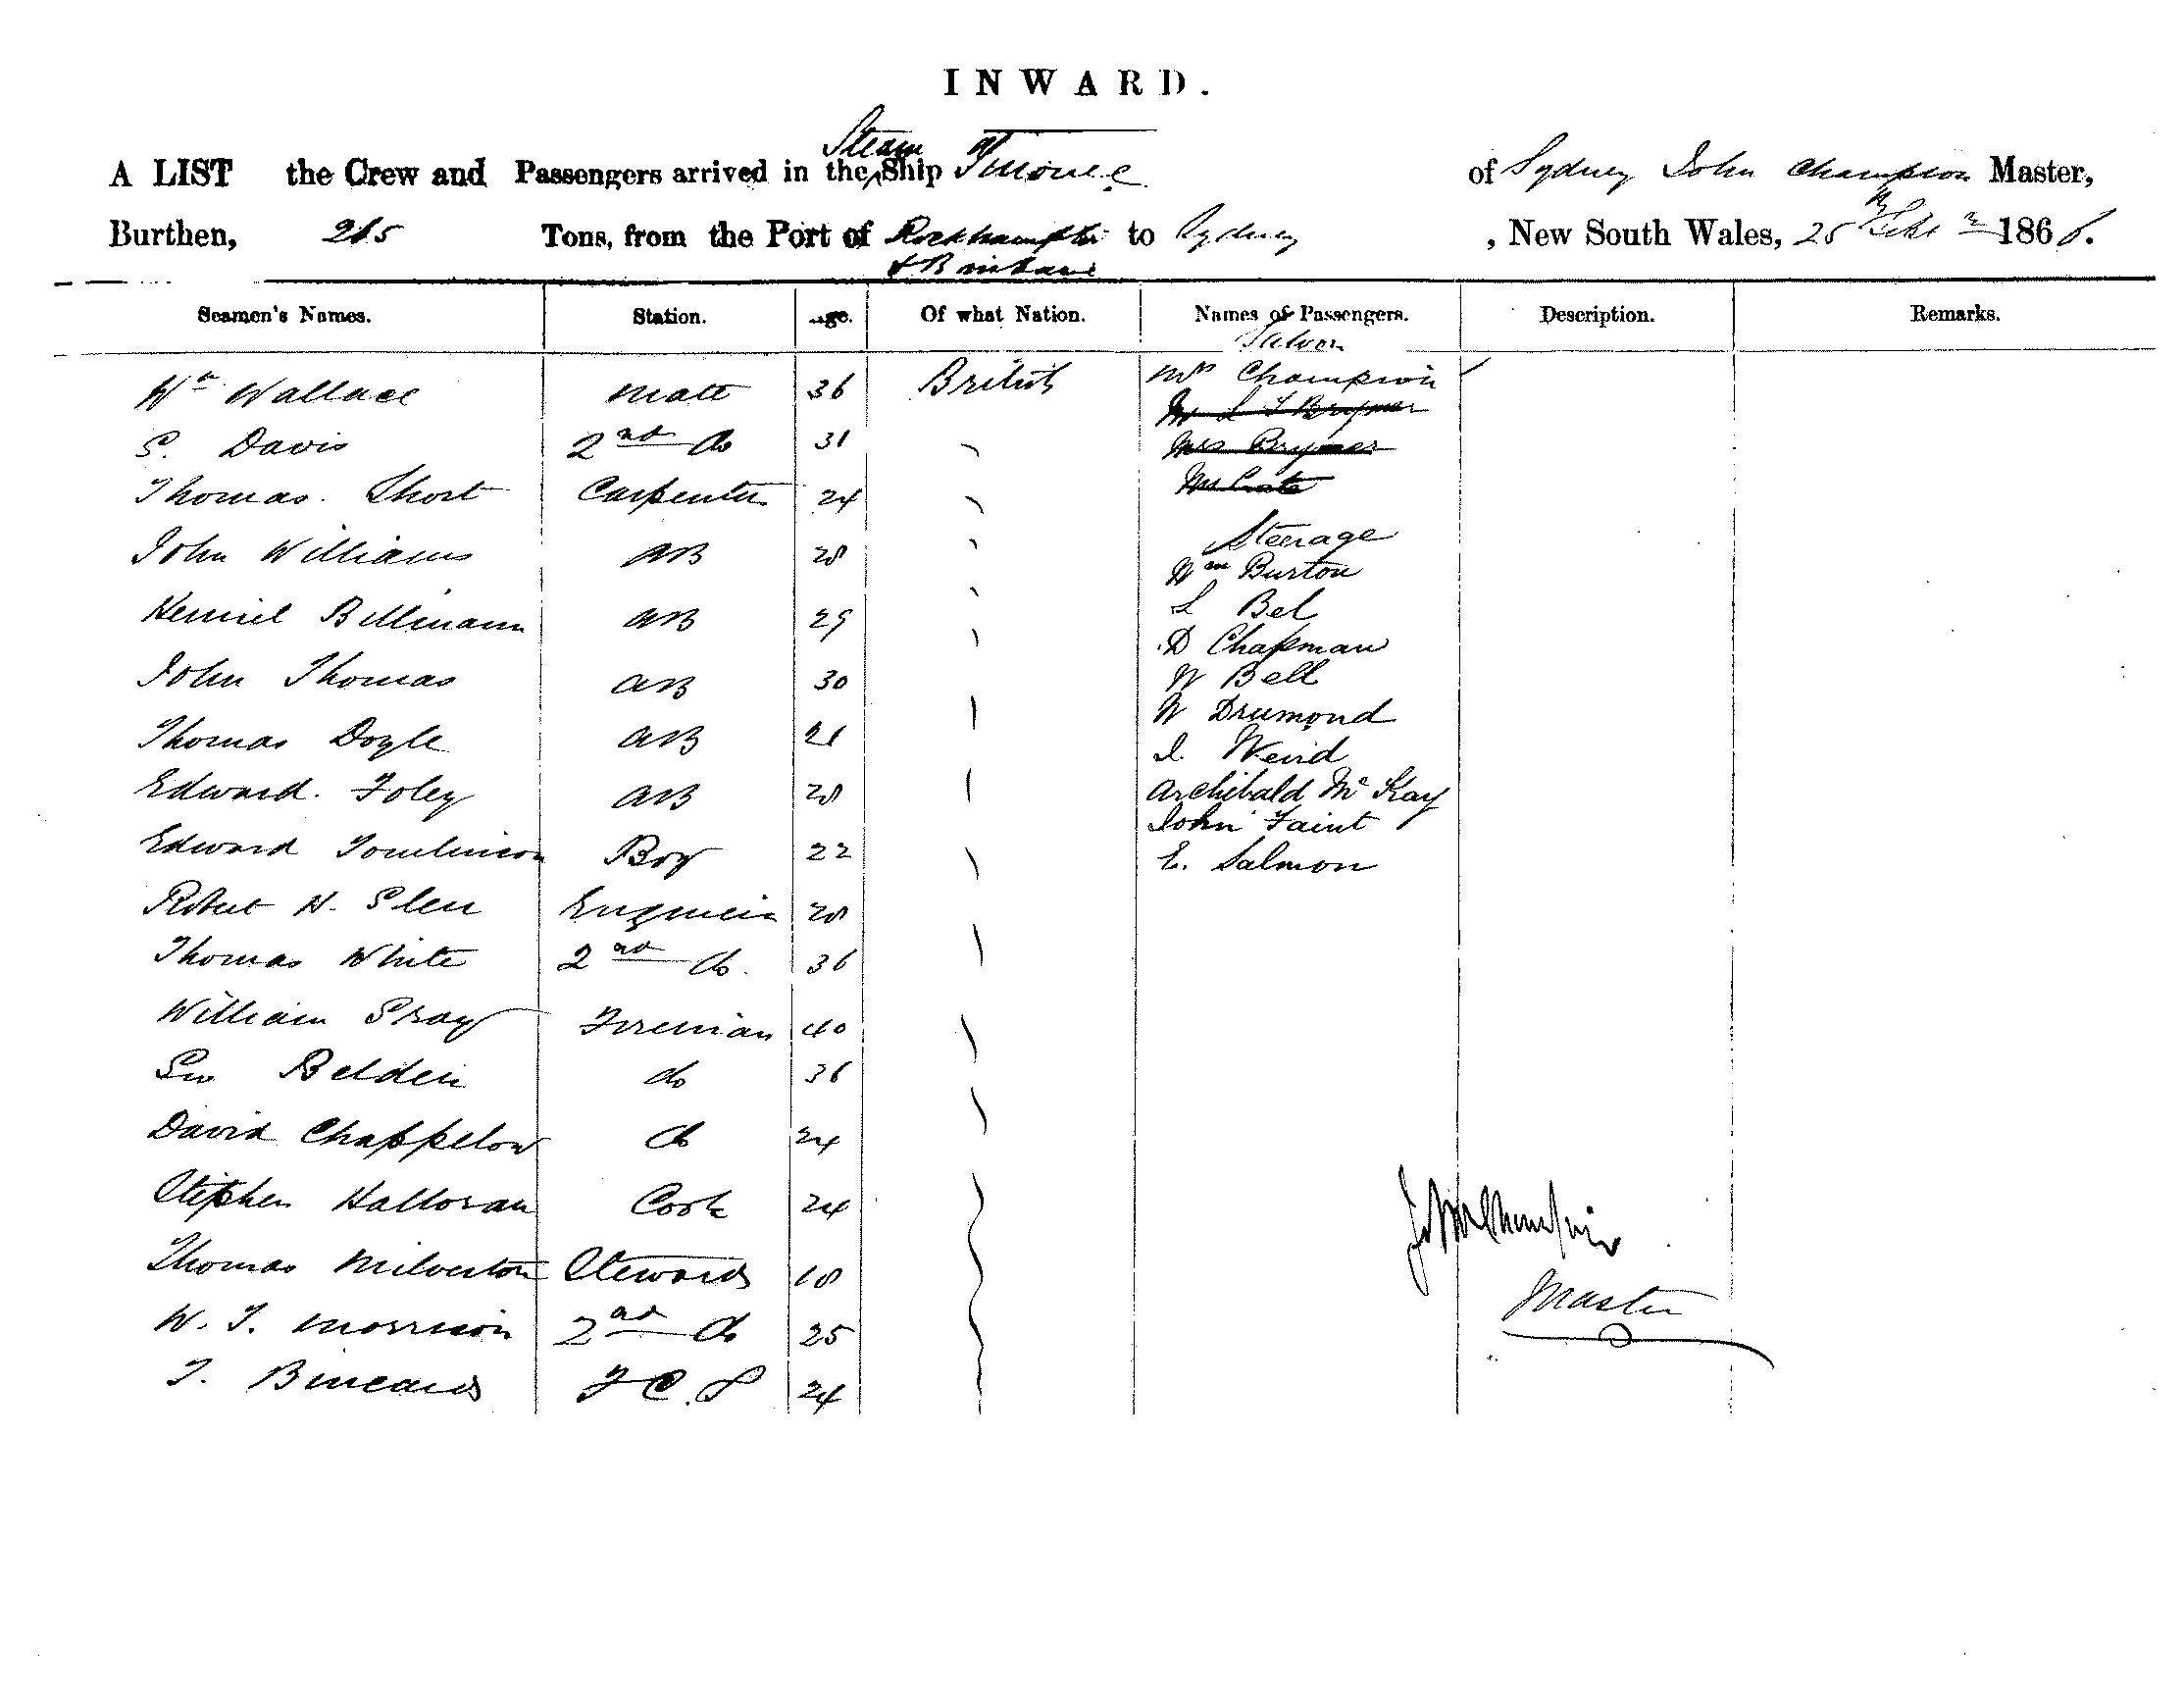 INWARD.
A LIST the Crew and Passengers arrived in the Steam Ship of Sydney John Champion Master,
Burthen, 215 Tons, from the Port of Rockhampton & Brisbane to Sydney, New South Wales, 25th 1866.
Seamen's Names. Station. Age. Of what Nation. Names of Passengers. Description. Remarks.
Saloon
Wm Wallace Mate 36 British Mrs Champion
Mr L T Brymer
S. Davis 2nd do 31 Mrs Brymer
Thomas Short Carpenter 24
Steerage
John Williams AB 28 Wm Burton
L Bel
Billmann AB 29 D Chapman
John Thomas AB 30 W Bell
W Drumond
Thomas Doyle AB 21 Weird
Edward Foley AB 28 Archibald McKay
John Faint
Edward Tomlinson Boy 22 E. Salmon
Robert H. Glen Engineer 28
Thomas White 2nd do. 36
William Gray Fireman 40
Geo Belden do 36
David Chappelow do 24
Stephen Halloran Cook 24
Thomas Milverton Steward 18
W. T. Morrison 2nd do 25
T. 24
John Champion
Master